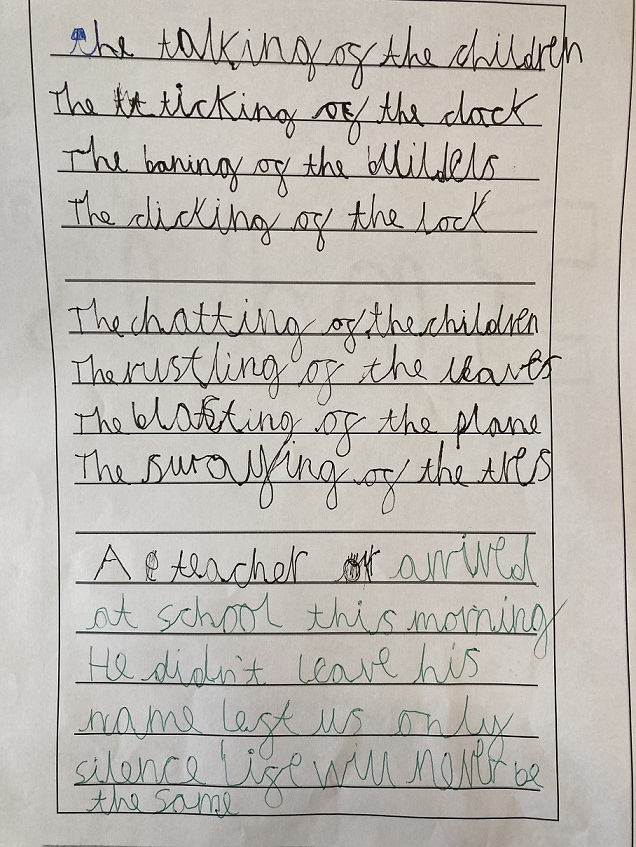 The talking of the children
The ticking of the clock
The baning of the builders
The clicking of the lock
The chatting of the children
The rustling of the leaves
The blasting of the plane
The swaying of the tres
A teacher arrived
at school this morning
He didn't leave his
name left us only
silence life will never be
the same